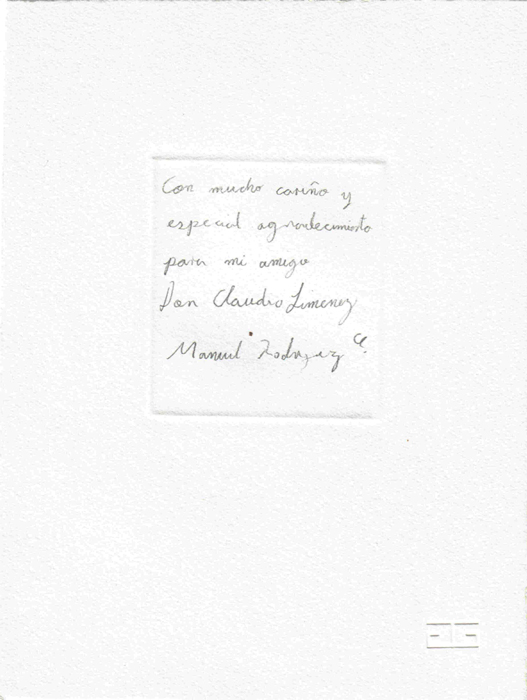 Con mucho cariño y
especial agradecimiento
para mi amigo
Don Claudio Jimenez
Manuel Rodriguez